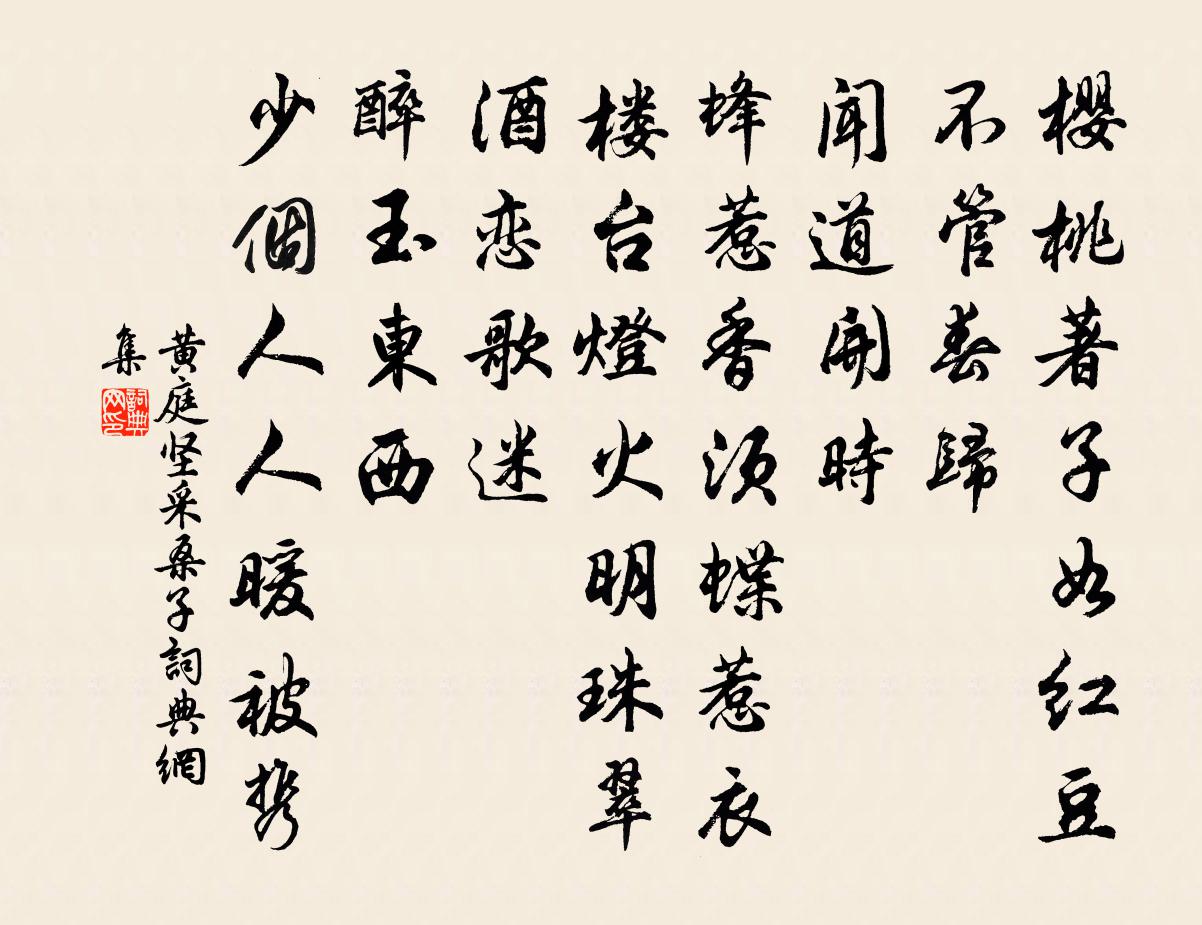 櫻桃著子如红豆
不管春歸
闻道開時
蜂惹香须蝶惹衣
楼台燈火明珠翠
酒恋歌迷
醉玉東西
少個人人暖被携
黄庭坚采桑子詞典網
集
詞典网印